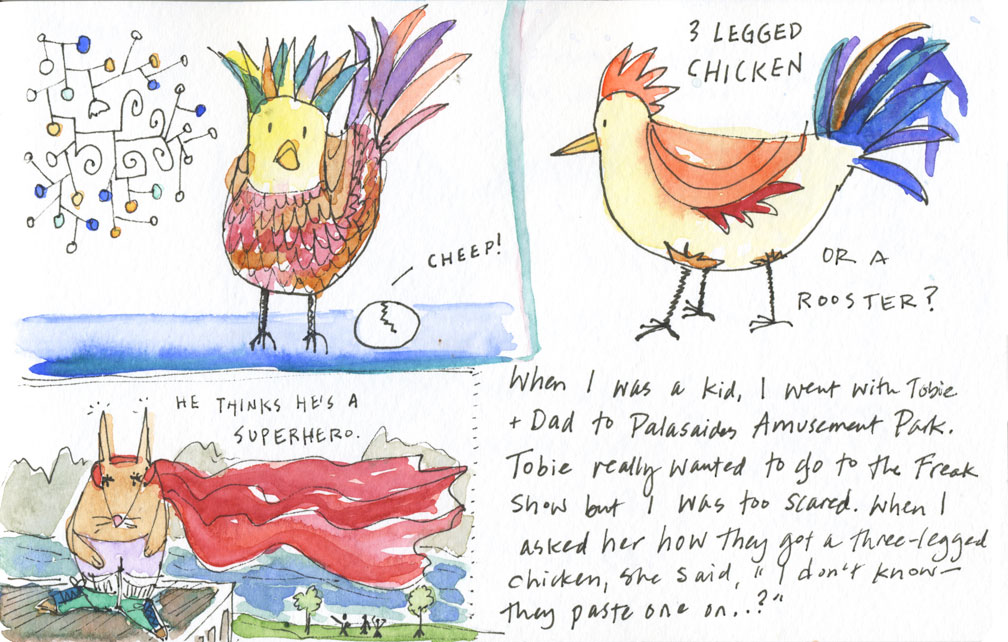 CHEEP!
3 LEGGED
CHICKEN
OR A
ROOSTER?
HE THINKS HE'S A
SUPERHERO.
When I was a kid, I went with Tobie
+ Dad to Palasaides Amusement Park.
Tobie really wanted to go to the Freak
Show but I was too scared. When I
asked her how they got a three-legged
chicken, she said, "I don't know—
they paste one on..?"